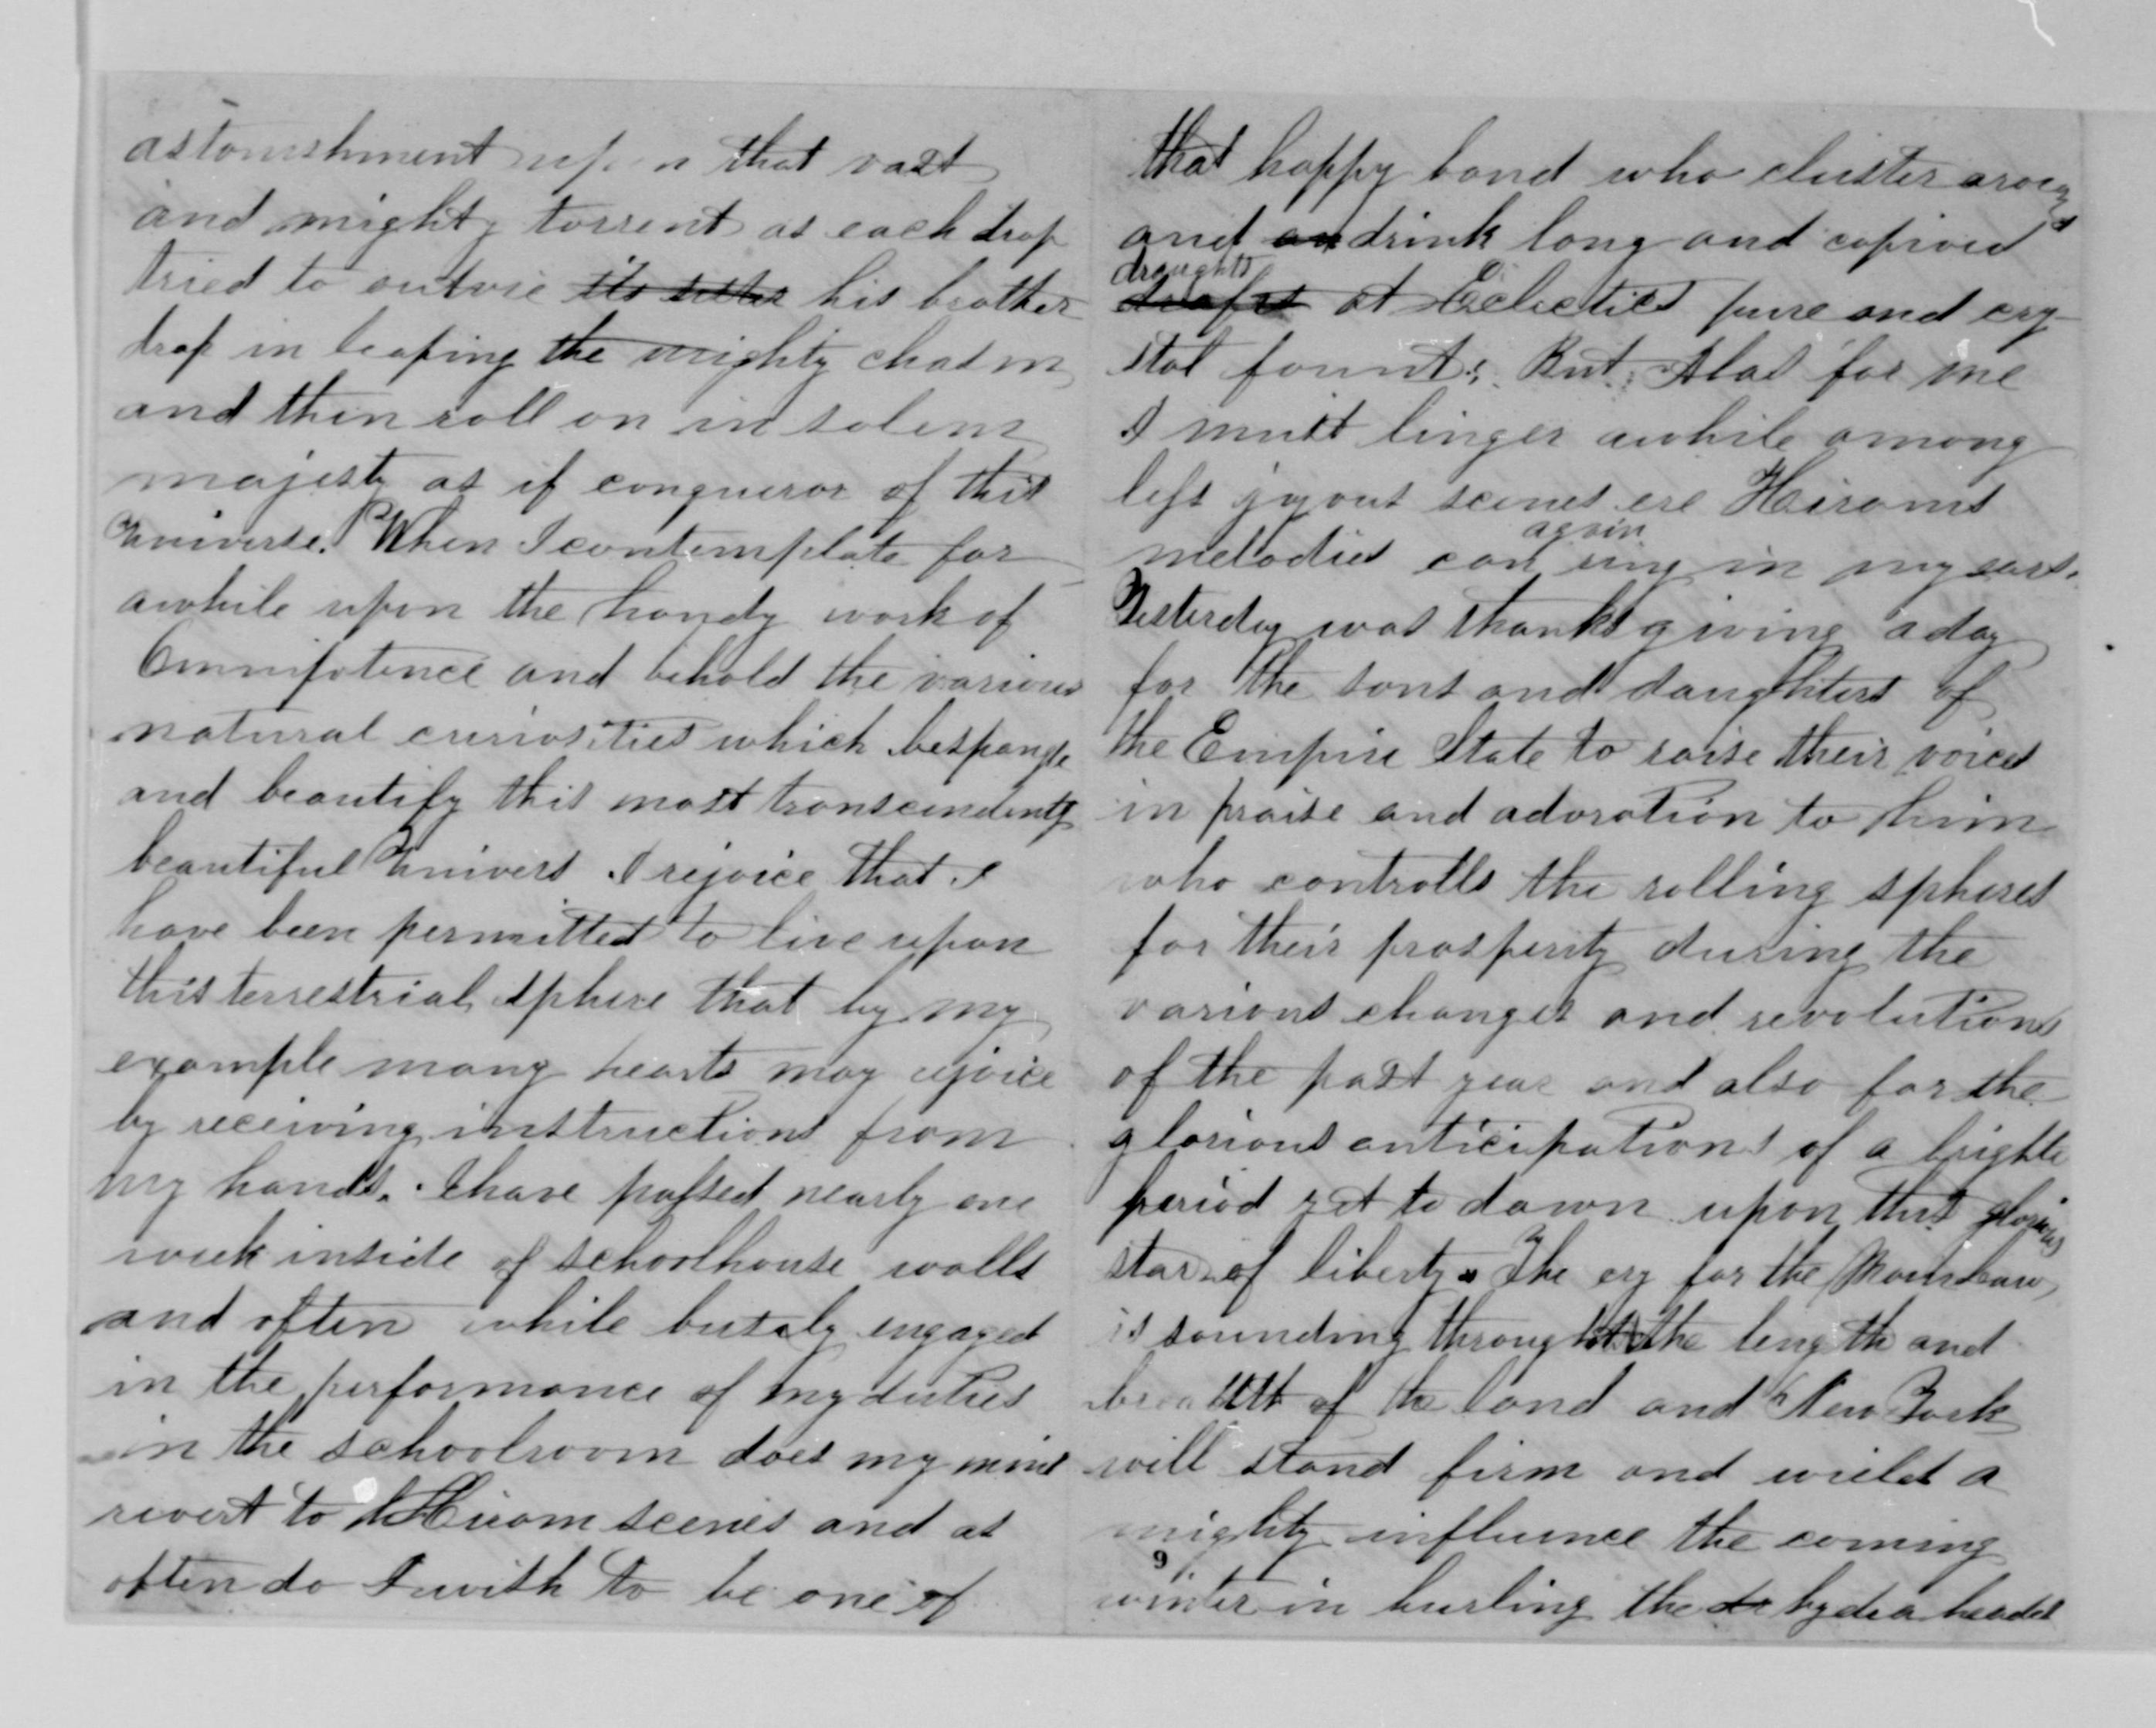 astonishment upon that vast
and mighty torrent as each drop
tried to outvie its sister his brother
drop in leaping the mighty chasm
and then roll on in solem
majesty as if conqueror of this
Universe. When I contemplate for
awhile upon the handy work of
Omnipotence and behold the various
natural curiosities which bespangle
and beautify this most transcendently
beautiful Univers I rejoice that I
have been permitted to live upon
this terrestrial sphere that by my
example many hearts may rejoice
by receiving instructions from
my hands. I have passed nearly one
week inside of schoolhouse walls
and often while busaly engaged
in the performance of my duties
in the schoolroom does my mind
revert to Hiram scenes and as
often do I wish to be one of
that happy band who cluster around
and drink long and copious
draughts
drafts at Eclectics pure and cry-
stal fount; But Alas for me
I must linger awhile among
less joyous scenes ere Hirams
again
melodies can ring in my ears.
Yesterday was thanksgiving a day
for the sons and daughters of
the Empire State to raise their voices
in praise and adoration to him
who controlls the rolling spheres
for their prosperity during the
various changes and revolutions
of the past year and also for the
glorious anticipations of a brighter
period yet to dawn upon this glorious
star of liberty. The cry for the
is sounding through the length and
breadth of the land and New York
will stand firm and wield a
mighty influence the coming
9
winter in hurling the hydra headed